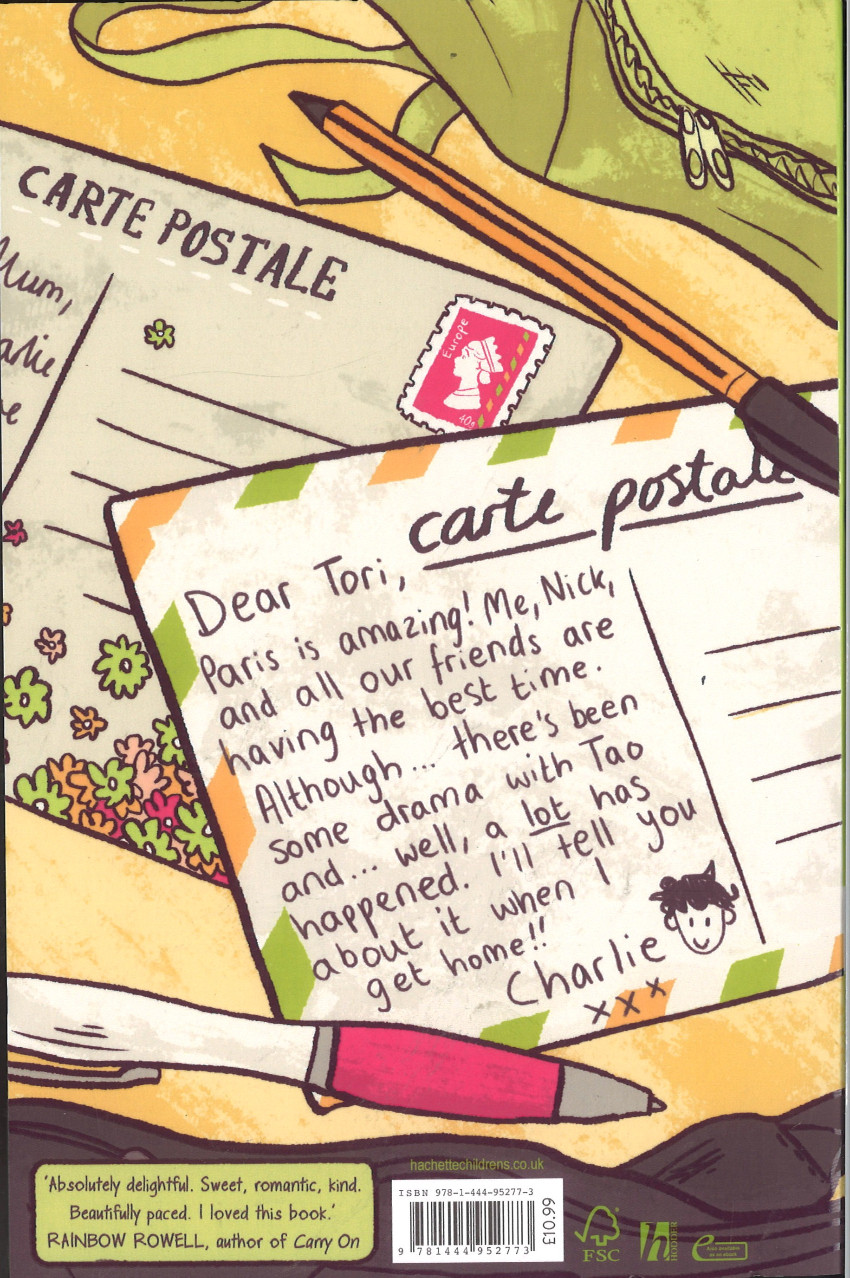 CARTE POSTALE
Mum,
Europe
40g
carte postale
Dear Tori,
Paris is amazing! Me, Nick,
and all our friends are
having the best time.
Although... there's been
some drama with Tao
and... well, a lot has
happened. I'll tell you
about it when I
get home!!
Charlie
xxx
hachettechildrens.co.uk
'Absolutely delightful. Sweet, romantic, kind.
Beautifully paced. I loved this book.'
RAINBOW ROWELL, author of Carry On
ISBN 978-1-444-95277-3
9 781444 952773
£10.99
FSC
h
HODDER
e
Also available
as an ebook